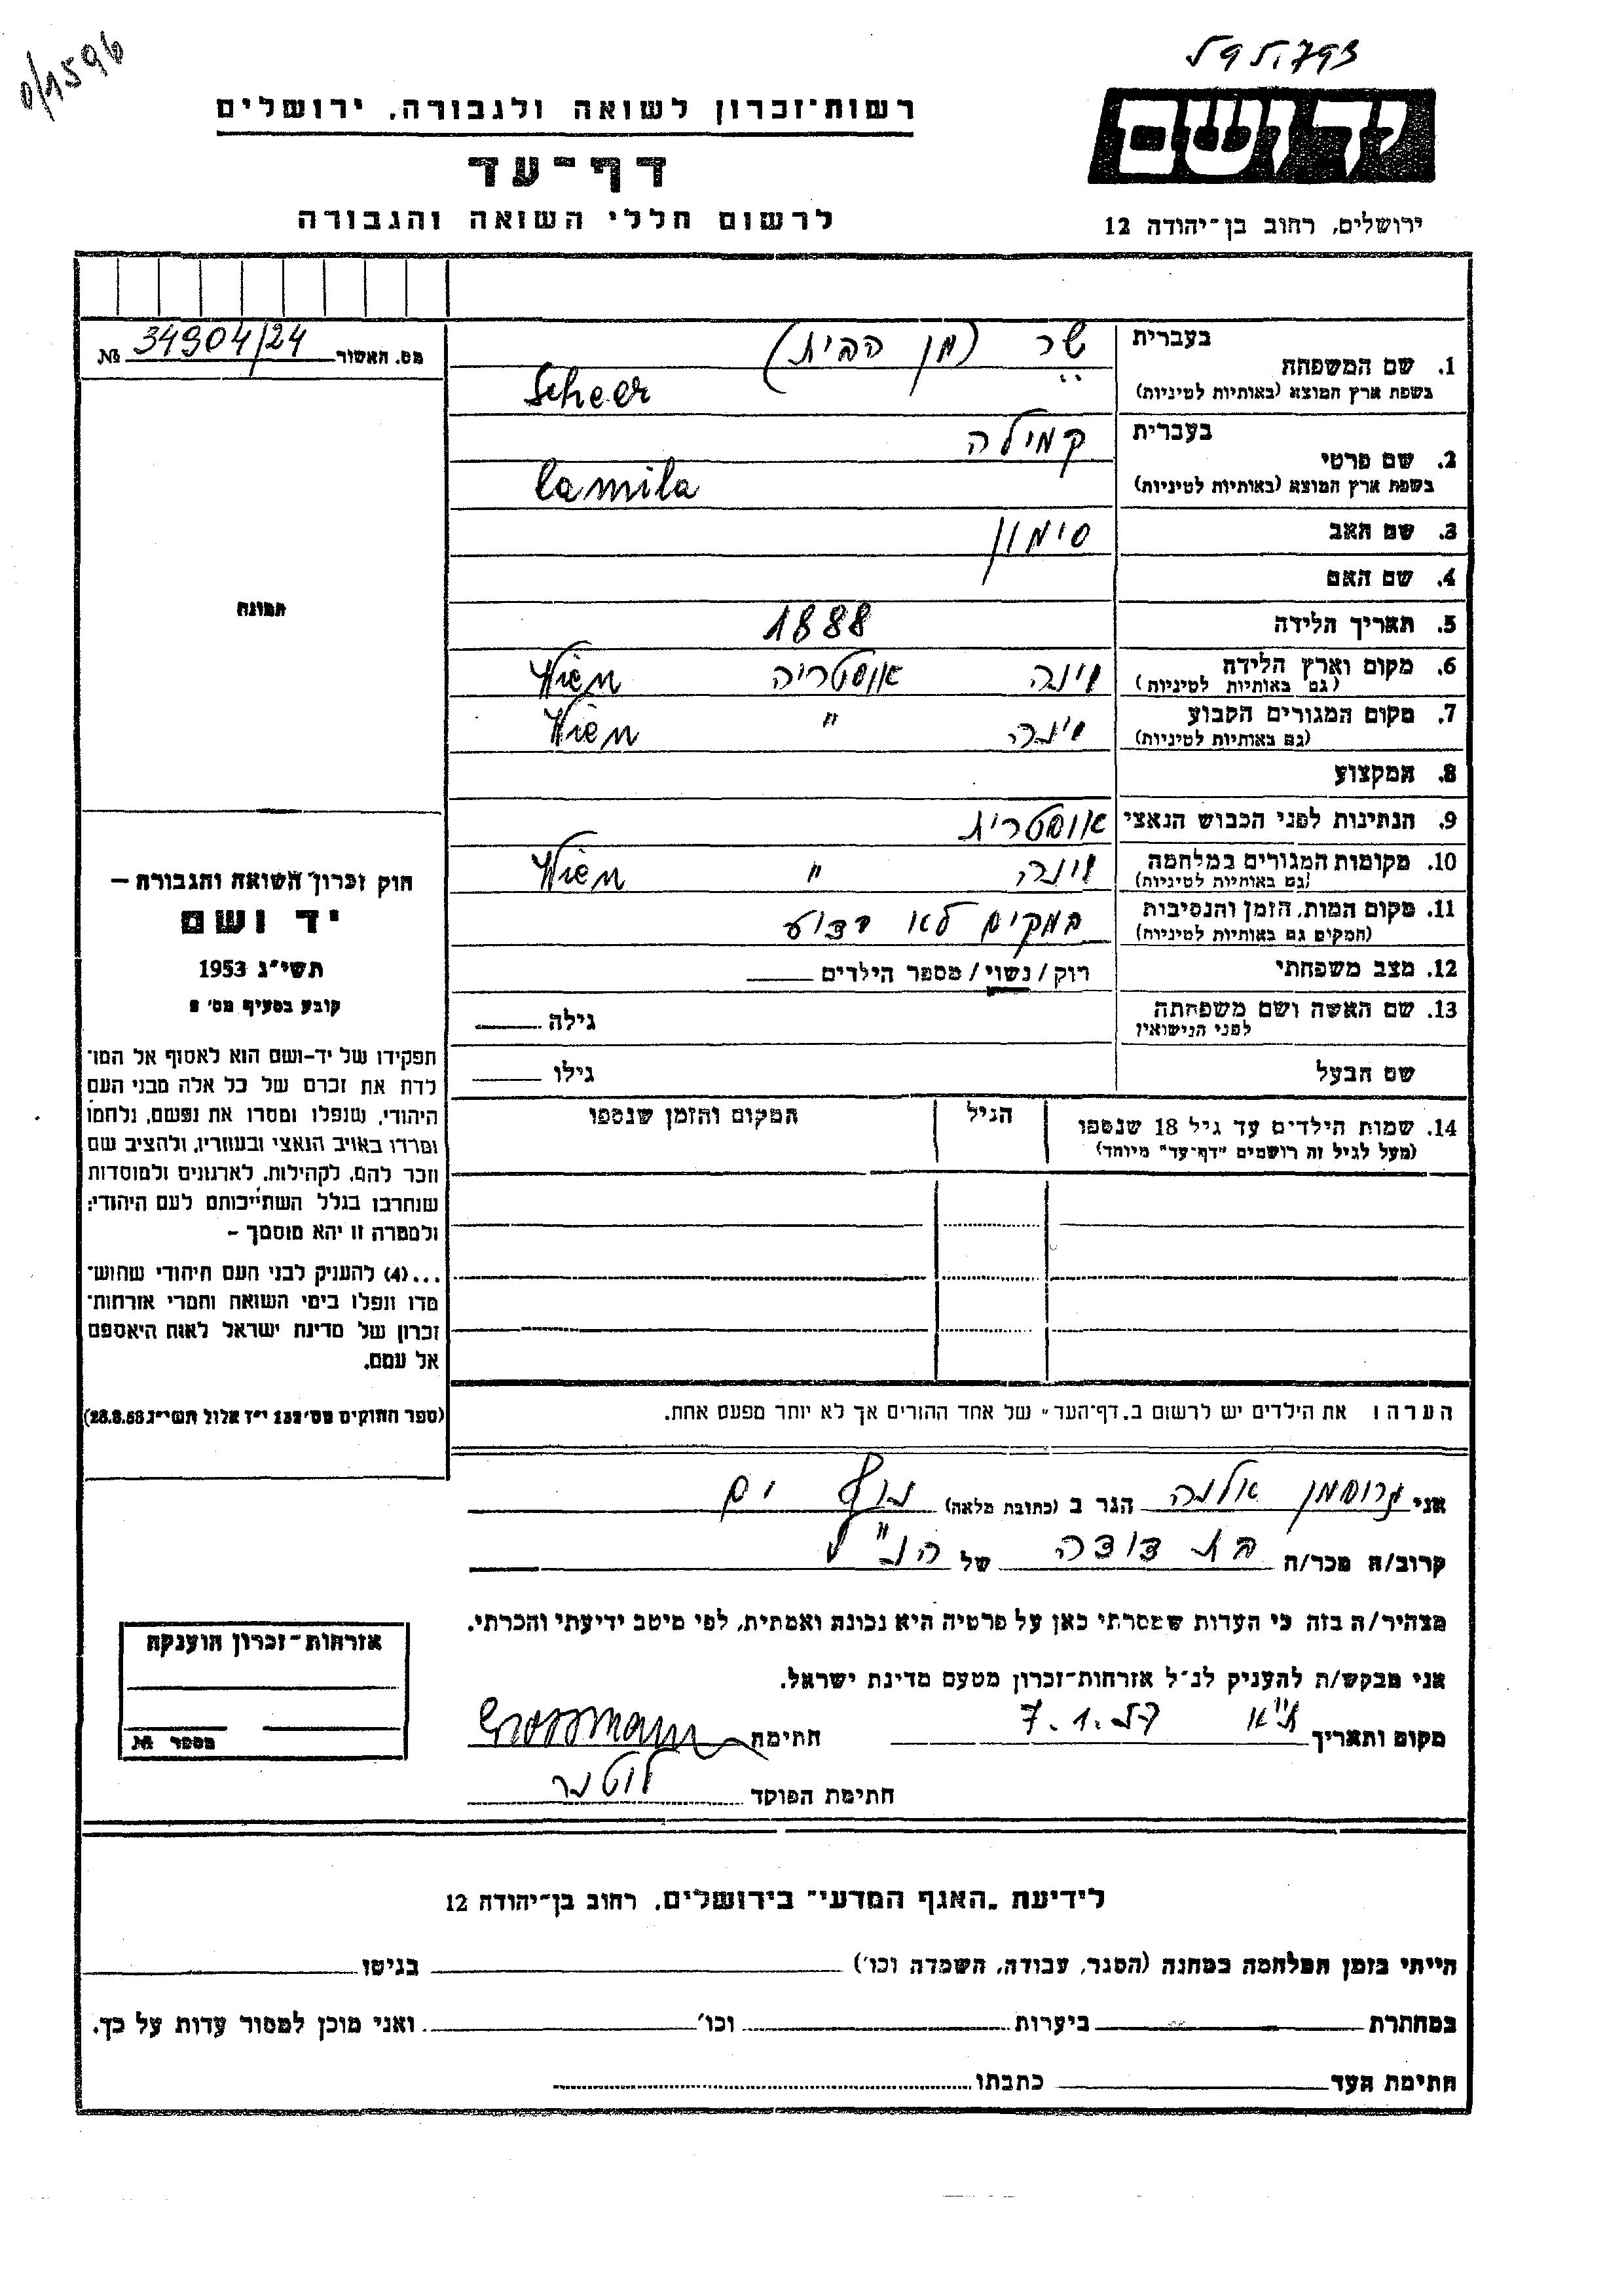 0/1596
595.793
יד ושם
ירושלים, רחוב בן־יהודה 12
רשות־זכרון לשואה ולגבורה, ירושלים
דף־עד
לרשום חללי השואה והגבורה
מס. האשור № 34904/24
תמונה
חוק זכרון השואה והגבורה —
יד ושם
תשי״ג 1953
קובע בסעיף מס׳ 2
תפקידו של יד-ושם הוא לאסוף אל המו־
לדת את זכרם של כל אלה מבני העם
היהודי, שנפלו ומסרו את נפשם, נלחמו
ומרדו באויב הנאצי ובעוזריו, ולהציב שם
וזכר להם, לקהילות, לארגונים ולמוסדות
שנחרבו בגלל השתייכותם לעם היהודי;
ולמטרה זו יהא מוסמך –
...(4) להעניק לבני העם היהודי שהוש־
מדו ונפלו בימי השואה והמרי אזרחות־
זכרון של מדינת ישראל לאות היאספם
אל עמם.
(ספר החוקים מס׳ 132 י״ז אלול תשי״ג 28.8.53)
בעברית שר (מן הבית)
1. שם המשפחה
בשפת ארץ המוצא (באותיות לטיניות) Scheer
בעברית קמילה
2. שם פרטי
בשפת ארץ המוצא (באותיות לטיניות) Camila
3. שם האב סימון
4. שם האם
5. תאריך הלידה 1888
6. מקום וארץ הלידה וינה אוסטריה Wien
(גם באותיות לטיניות)
7. מקום המגורים הקבוע וינה " Wien
(גם באותיות לטיניות)
8. המקצוע
9. הנתינות לפני הכבוש הנאצי אוסטרית
10. מקומות המגורים במלחמה וינה " Wien
(גם באותיות לטיניות)
11. מקום המות, הזמן והנסיבות במקום לא ידוע
(המקום גם באותיות לטיניות)
12. מצב משפחתי רוק/נשוי/מספר הילדים
13. שם האשה ושם משפחתה גילה
לפני הנישואין
שם הבעל גילו
14. שמות הילדים עד גיל 18 שנספו הגיל המקום והזמן שנספו
(מעל לגיל זה רושמים ״דף־עד״ מיוחד)
הערה ו את הילדים יש לרשום ב„דף־העד״ של אחד ההורים אך לא יותר מפעם אחת.
אני גרוסמן אלנה הגר ב (כתובת מלאה) נוף ים
קרוב/ה מכר/ה בת דודה של הנ״ל
מצהיר/ה בזה כי העדות שמסרתי כאן על פרטיה היא נכונה ואמתית, לפי מיטב ידיעתי והכרתי.
אני מבקש/ת להעניק לנ״ל אזרחות־זכרון מטעם מדינת ישראל.
מקום ותאריך ת״א 7.1.57 חתימה Grossmann
חתימת הפוקד
אזרחות־זכרון הוענקה
מספר №
לידיעת „האגף המדעי״ בירושלים, רחוב בן־יהודה 12
הייתי בזמן המלחמה במחנה (הסגר, עבודה, השמדה וכו׳) בגיטו
במחתרת ביערות וכו׳ ואני מוכן למסור עדות על כך.
חתימת העד כתבתו